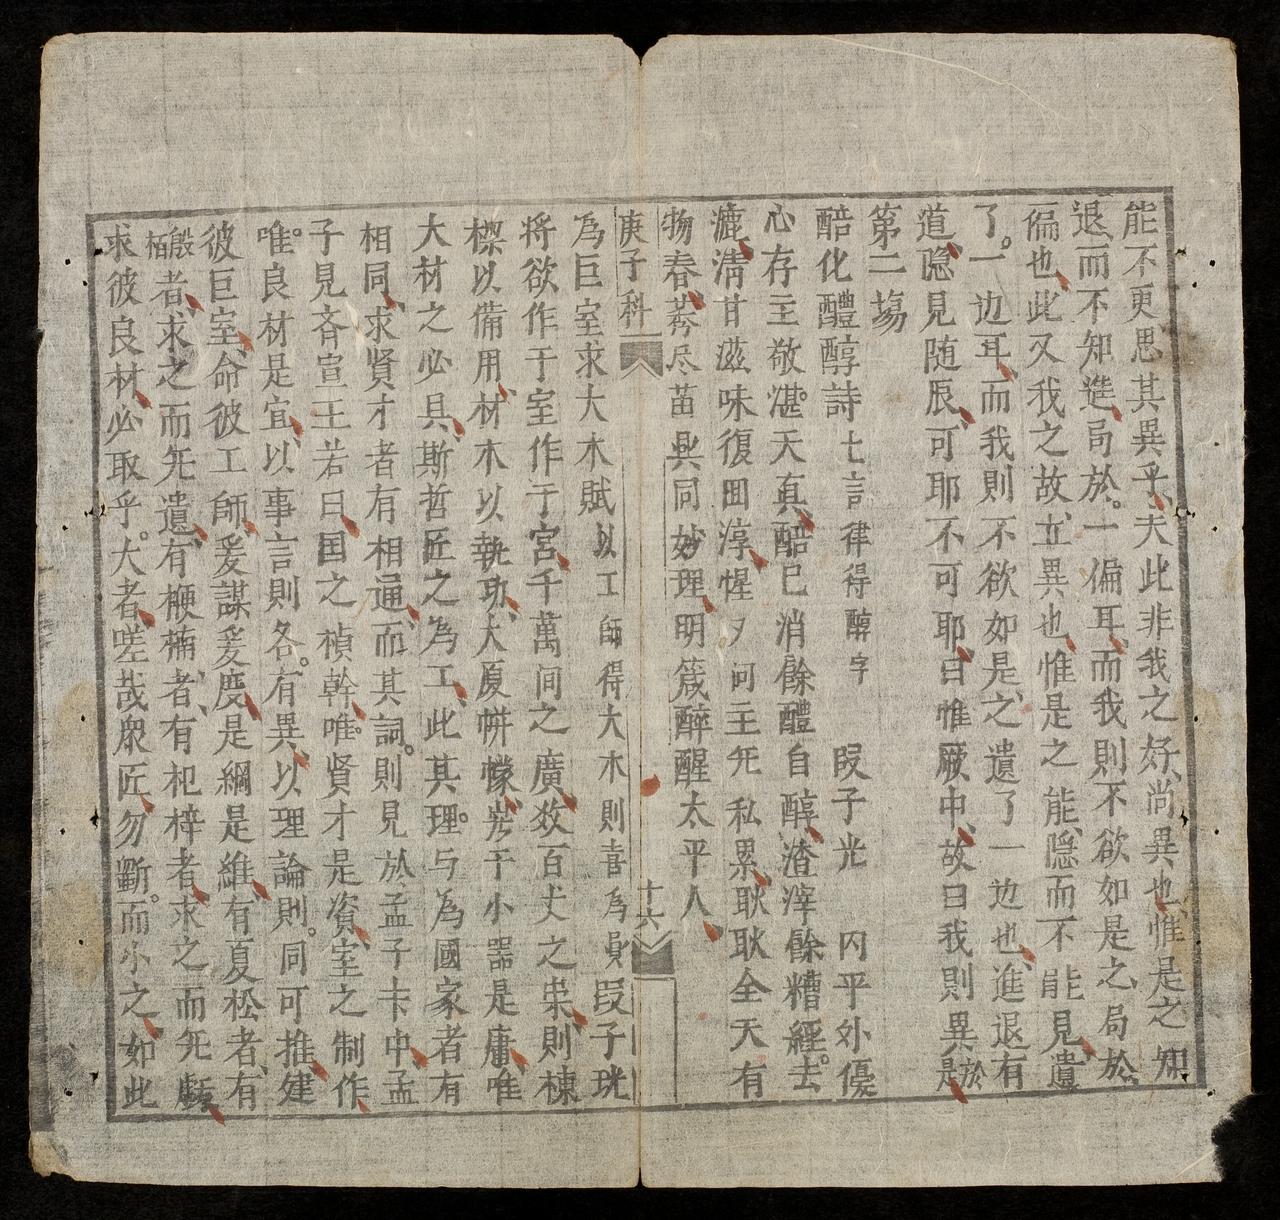 能不更思其異乎夫此非我之好尚異也惟是之知
退而不知進局於一偏耳而我則不欲如是之局於
偏也此又我之故立異也惟是之能隠而不能見遺
了一边耳而我則不欲如是之遺了一边也進退有
道隠見随辰可耶不可耶曰惟厥中故曰我則異於是
第二塲
醅化醴醇詩七言律得醇字 段子光 內平外優
心存主敬湛天真醅已消餘醴自醇渣滓餘糟經去
漉清甘滋味復囬淳惺夕问主旡私累耿耿全天有
物春莠尽苗興同妙理明箴醉醒太平人
庚子科 十六
為巨室求大木賦以工師得大木則喜為員 段子珖
將欲作于室作于宮千萬间之廣效百丈之崇則棟
樑以備用材木以執功大厦帡幪㫄于小器是庸唯
大材之必具斯哲匠之為工此其理与為國家者有
相同求賢才者有相通而其詞則見於孟子卞中孟
子見斉宣王若曰国之楨幹唯賢才是資室之制作
唯良材是宜以事言則各有異以理論則同可推建
彼巨室命彼工師爰謀爰度是綱是維有夏松者有
殷栢者求之而旡遺有楩楠者有杞梓者求之而旡虧
求彼良材必取乎大者嗟哉衆匠勿斵而小之如此